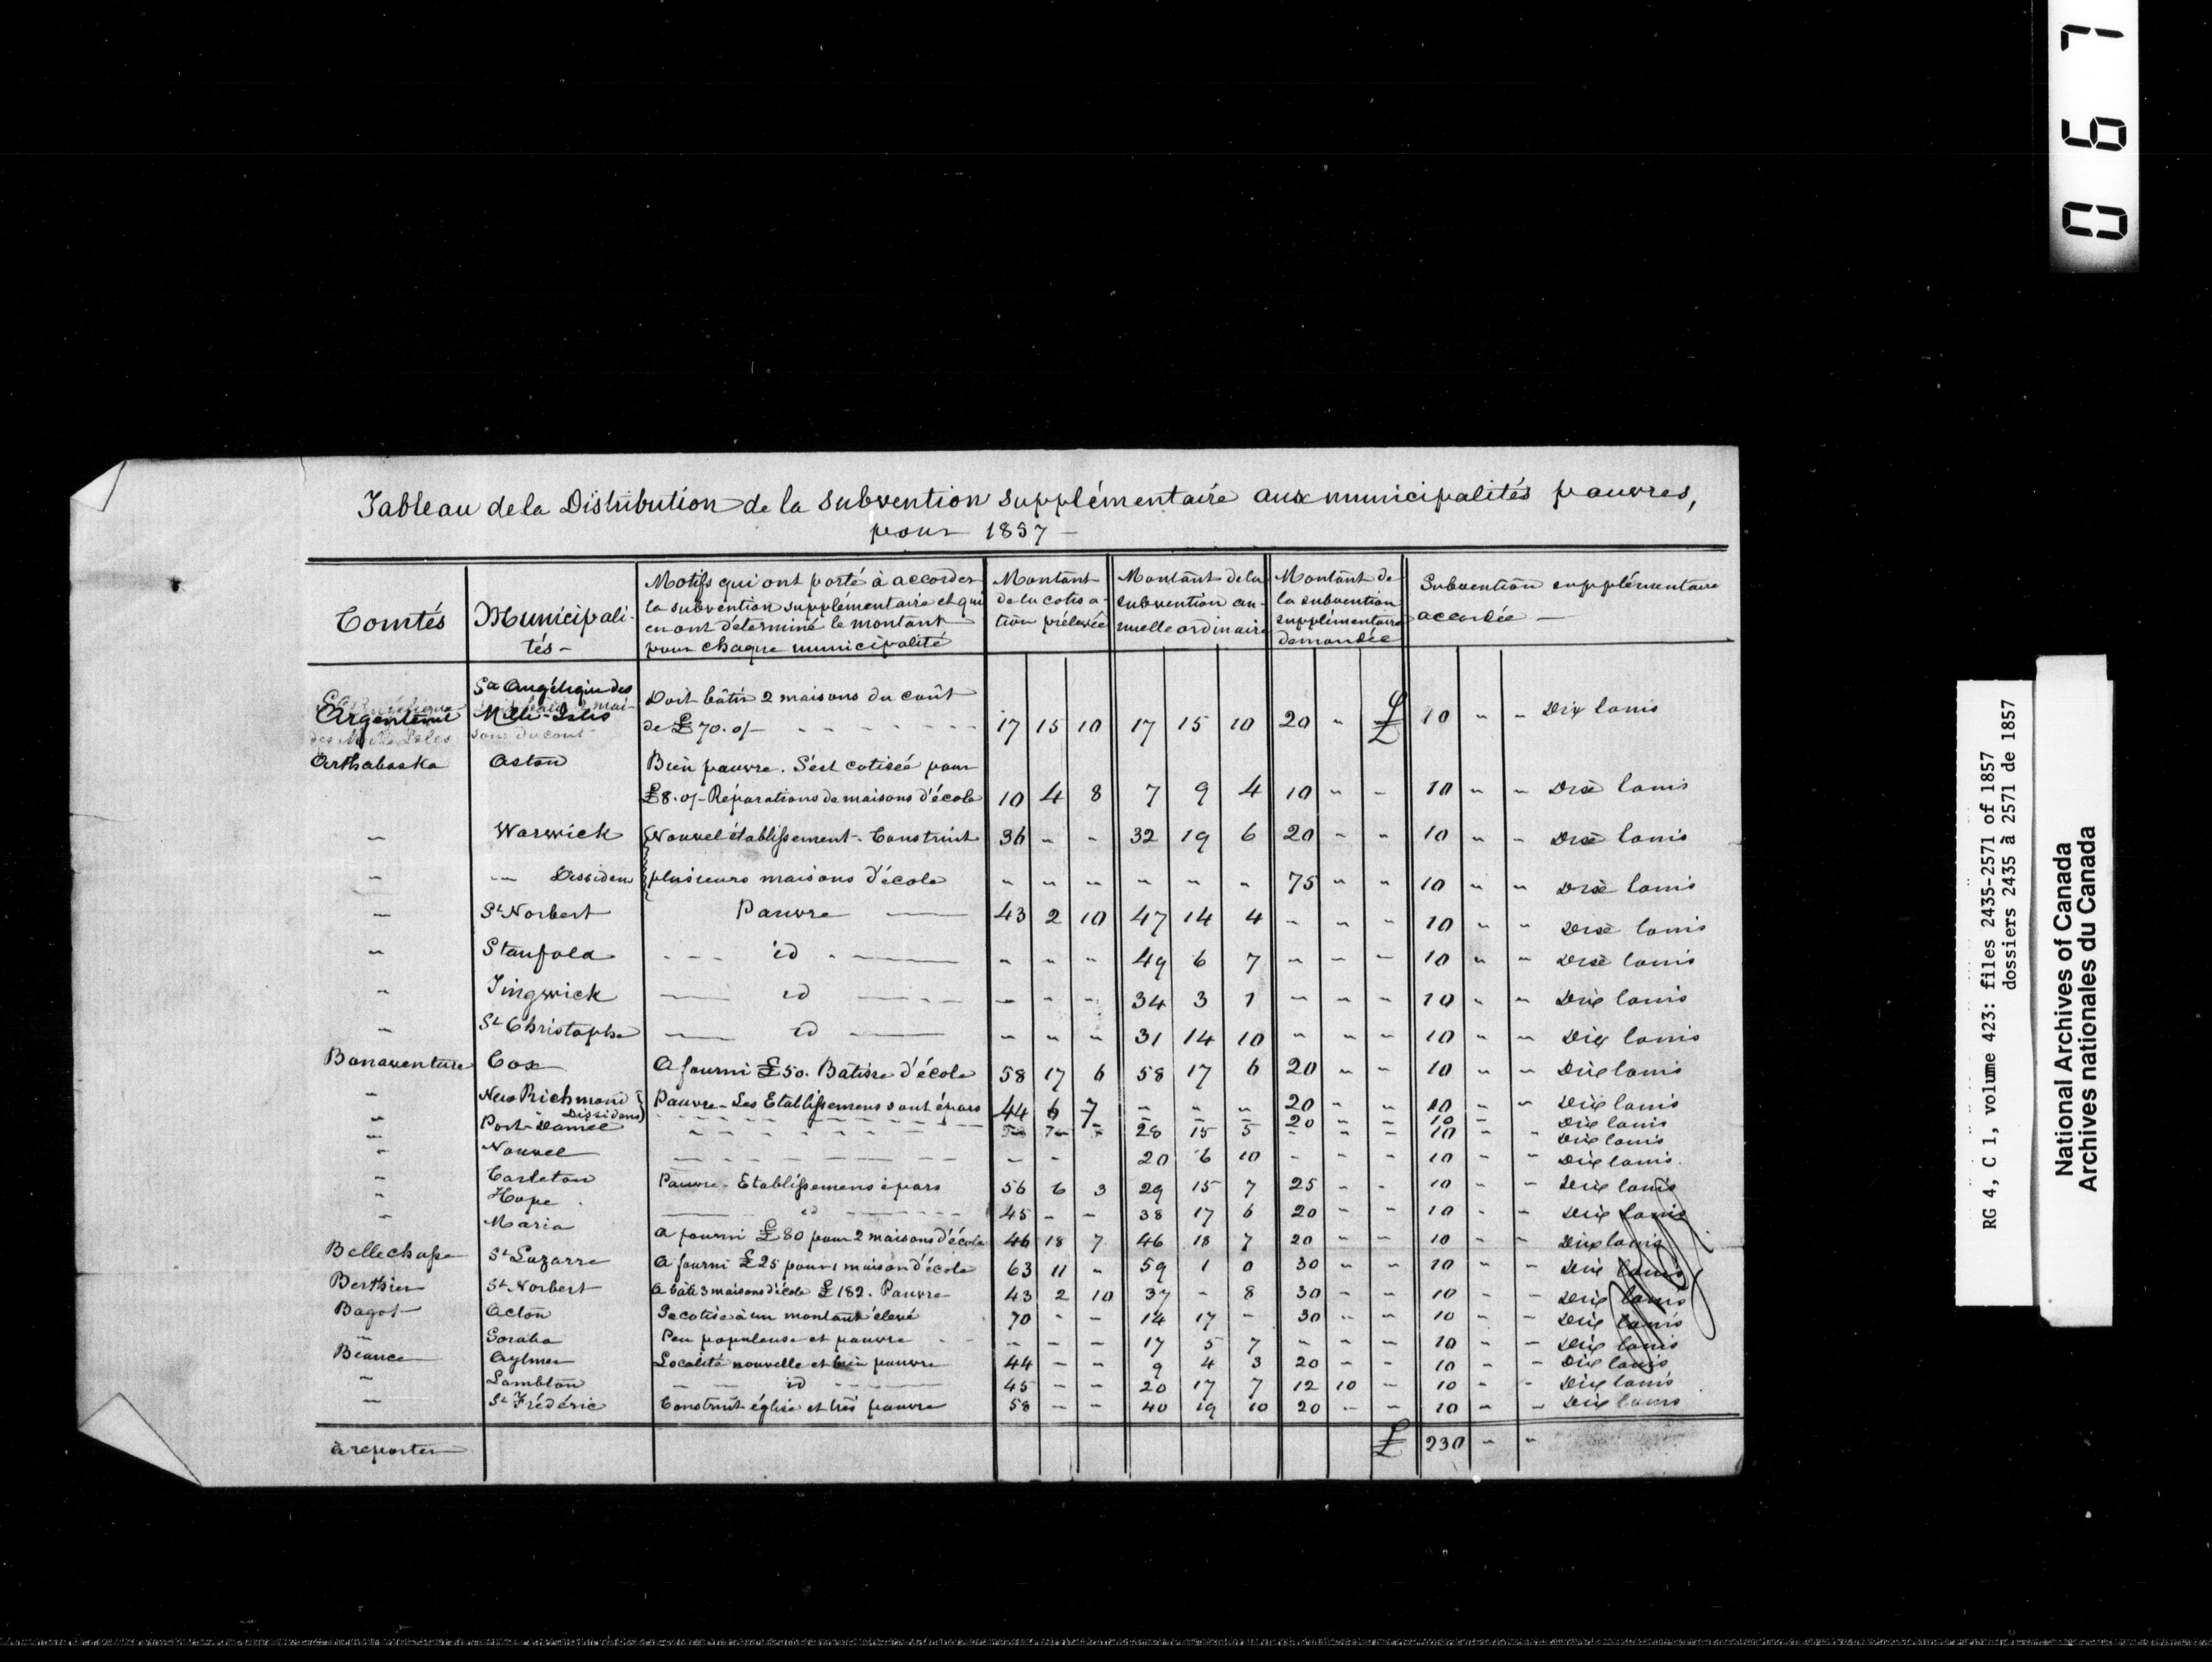 Tableau de la Distribution de la subvention supplémentaire aux municipalités pauvres,
pour 1857 —
Comtés | Municipalités — | Motifs qui ont porté à accorder la subvention supplémentaire et qui en ont déterminé le montant pour chaque municipalité | Montant de la cotisation prélevée | Montant de la subvention annuelle ordinaire | Montant de la subvention supplémentaire demandée | Subvention supplémentaire accordée —
Argenteuil | Ste Angélique des Mille-Isles | Doit bâtir 2 maisons du coût de £70.0/- | 17 15 10 | 17 15 10 | 20 " £ | 10 " " Dix louis
Arthabaska | Aston | Bien pauvre. S'est cotisée pour £8.0/- Réparations de maisons d'école | 10 4 8 | 7 9 4 | 10 " " | 10 " " Dix louis
" | Warwick | Nouvel établissement - Construit | 36 " " | 32 19 6 | 20 " " | 10 " " Dix louis
" | " Dissiden | plusieurs maisons d'école | " " " | " " " | 75 " " | 10 " " Dix louis
" | St Norbert | Pauvre — | 43 2 10 | 47 14 4 | " " " | 10 " " Dix louis
" | Stanfold | id | " " " | 49 6 7 | " " " | 10 " " Dix louis
" | Tingwick | id | " " " | 34 3 1 | " " " | 10 " " Dix louis
" | St Christophe | id | " " " | 31 14 10 | " " " | 10 " " Dix louis
Bonaventure | Cox | A fourni £50. Bâtisse d'école | 58 17 6 | 58 17 6 | 20 " " | 10 " " Dix louis
" | New Richmond | Pauvre - Les Etablissemens sont épars | 44 6 7 | " " " | 20 " " | 10 " " Dix louis
" | Dissidens | " | " | 20 " " | 10 " Dix louis
" | Port-Daniel | " | 28 15 5 | " " " | 10 " " Dix louis
" | Nouvel | " " | 20 6 10 | " " " | 10 " " Dix louis.
" | Carleton | Pauvre - Etablissemens épars | 56 6 3 | 29 15 7 | 25 " " | 10 " " Dix louis
" | Hope | id | 45 " " | 38 17 6 | 20 " " | 10 " " Dix louis
" | Maria | A fourni £80 pour 2 maisons d'école | 46 18 7 | 46 18 7 | 20 " " | 10 " " Dix louis
Bellechasse | St Lazarre | A fourni £25 pour 1 maison d'école | 63 11 " | 59 1 0 | 30 " " | 10 " " Dix louis
Berthier | St Norbert | A bâti 3 maisons d'école £182. Pauvre | 43 2 10 | 37 " 8 | 30 " " | 10 " " Dix louis
Bagot | Acton | Se cotise à un montant élevé | 70 " " | 14 17 " | 30 " " | 10 " " Dix louis
" | Peu populeuse et pauvre | " " " | 17 5 7 | " " " | 10 " " Dix louis
Béauce | Aylmer | Localité nouvelle et bien pauvre | 44 " " | 9 4 3 | 20 " " | 10 " " Dix louis
" | Lambton | id | 45 " " | 20 17 7 | 12 10 " | 10 " " Dix louis
" | St Frédéric | Construit église et très pauvre | 58 " " | 40 19 10 | 20 " " | 10 " " Dix louis
à reporter | £ | 230 " "
067
RG 4, C 1, volume 423: files 2435-2571 of 1857
dossiers 2435 à 2571 de 1857
National Archives of Canada
Archives nationales du Canada